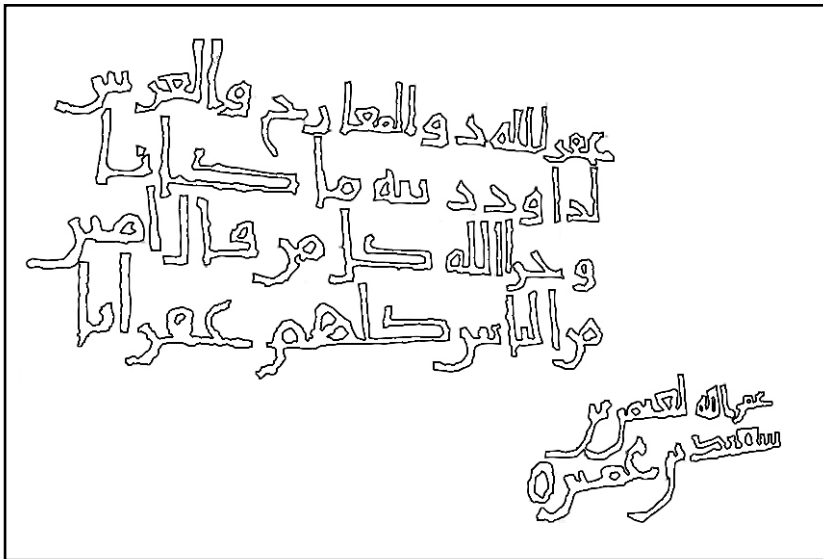 غفر الله ذو المعارج والعرش
لداود ذنبه ما كانا
وجزا الله كل من قال امين
من الناس كلهم غفرانا
غفر الله
سعيد بن عميره